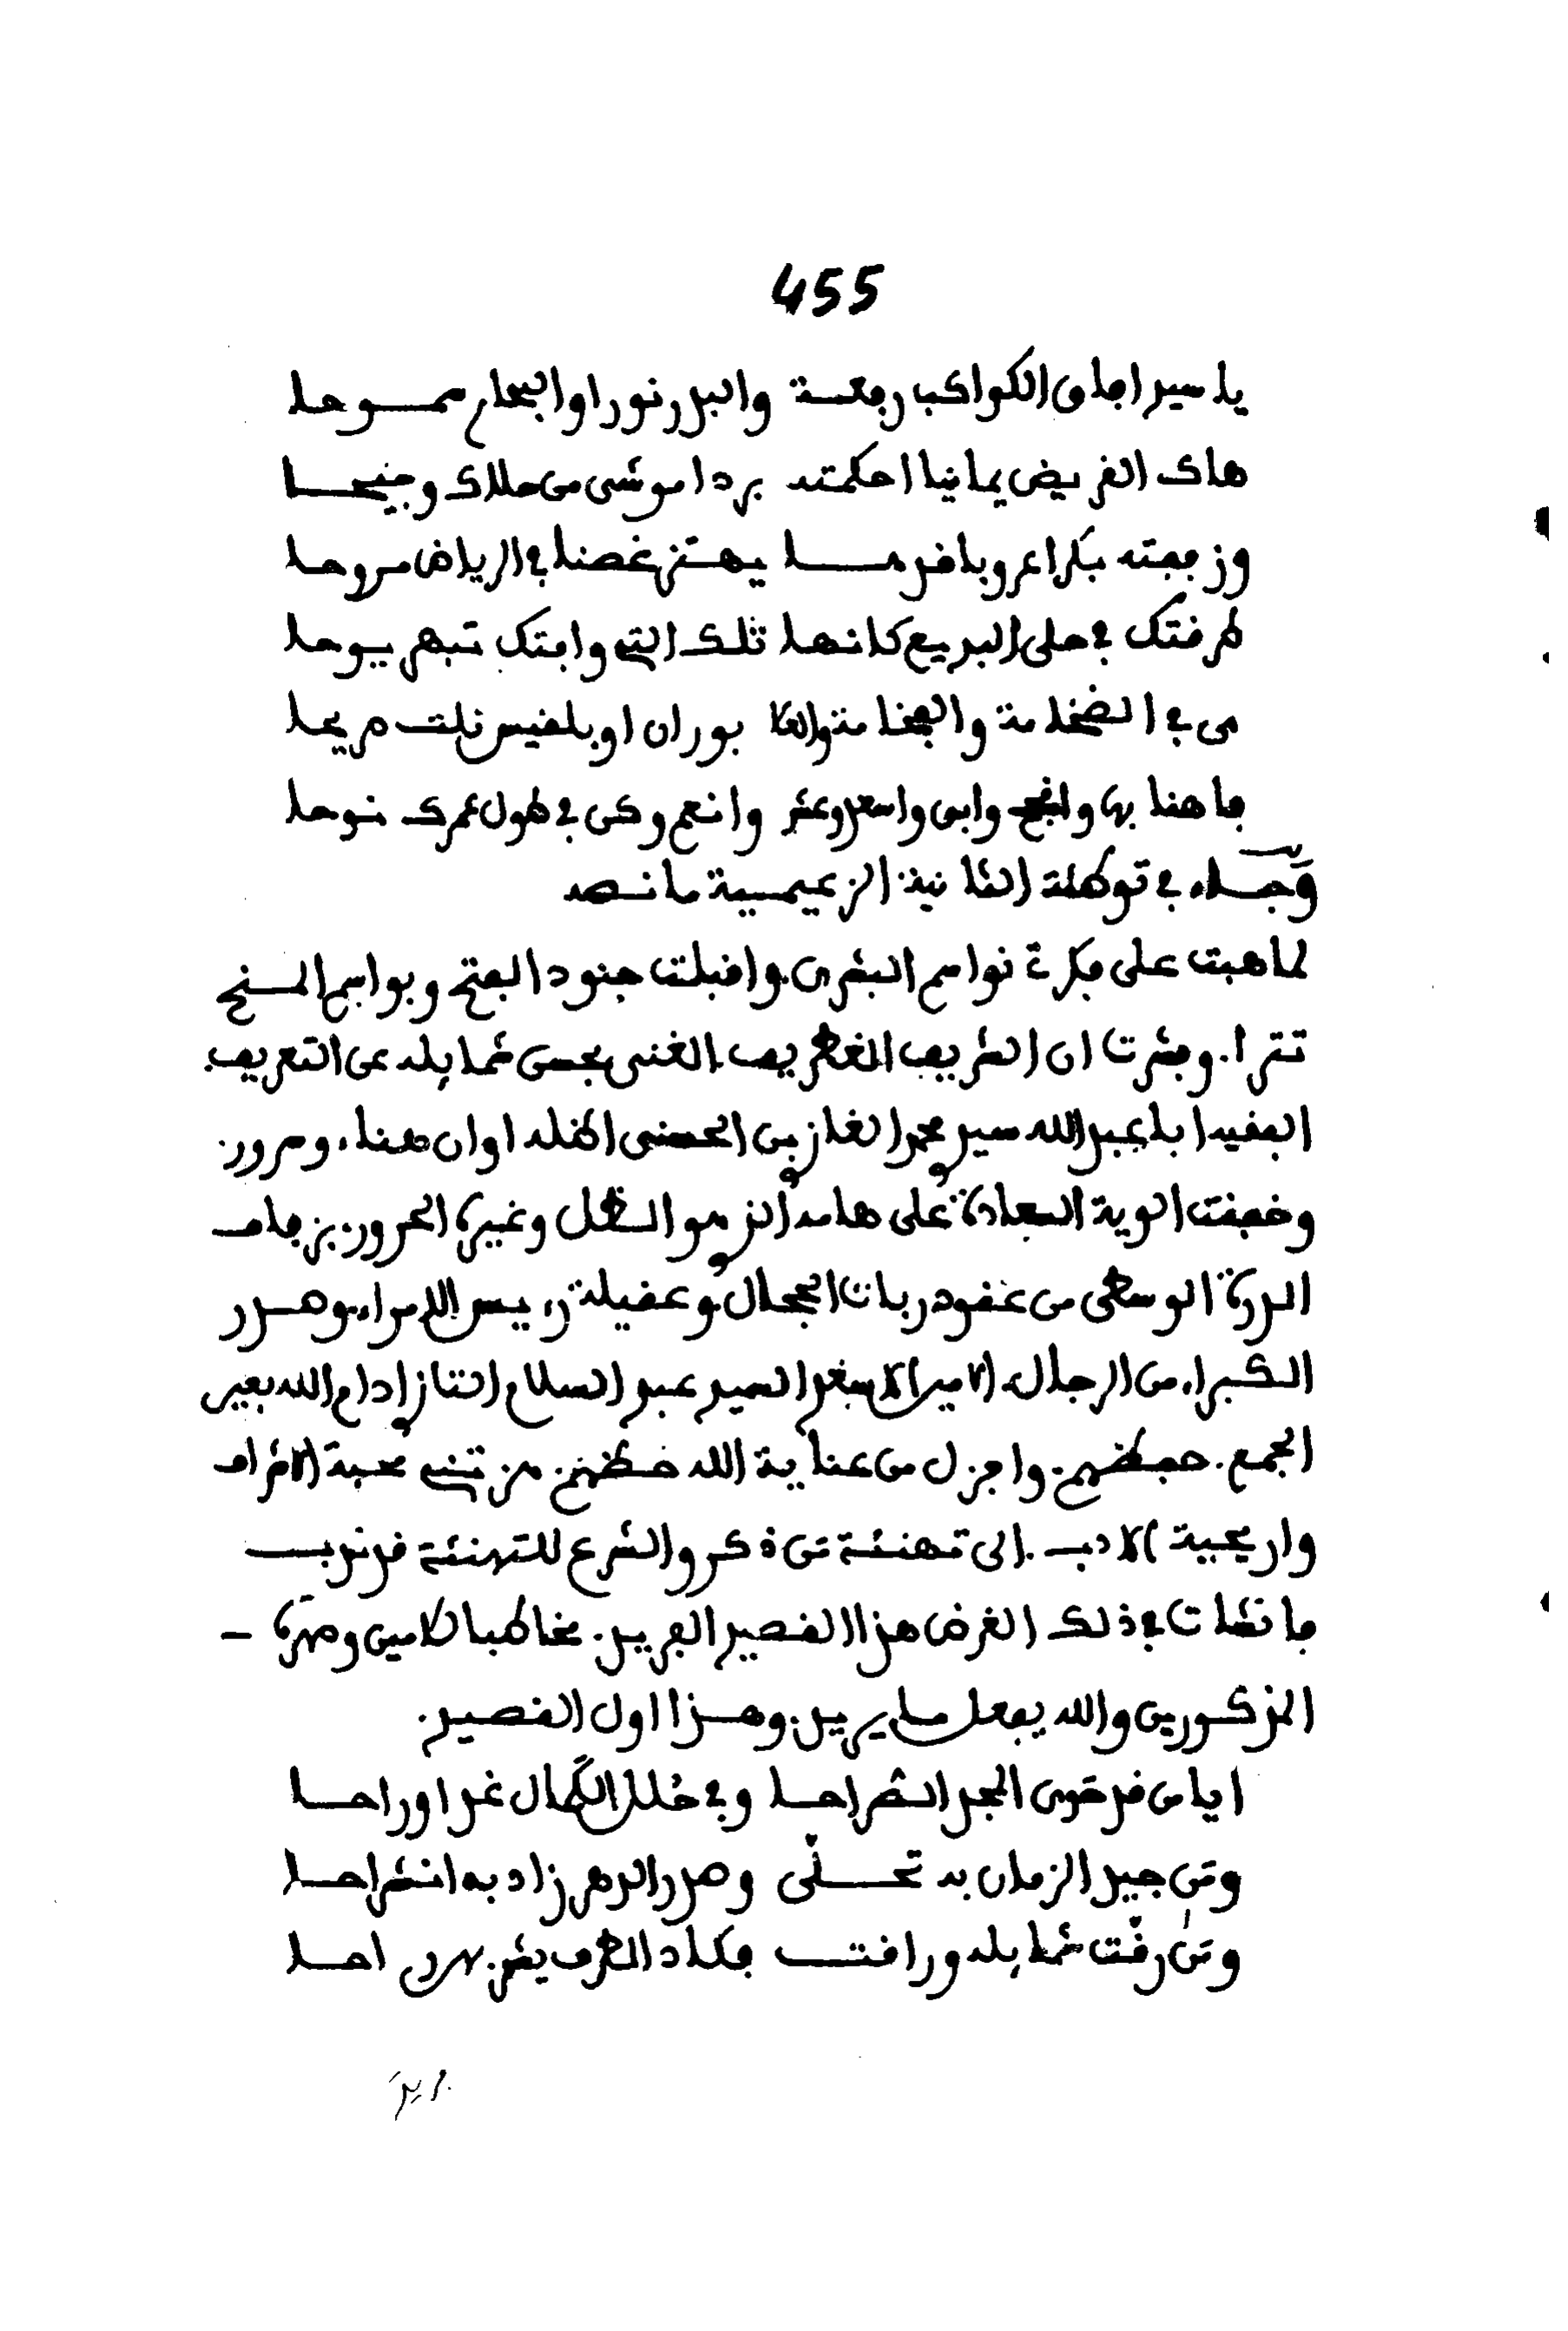 455
يا سيدا فاق الكواكب رفعة والبدر نورا والبحار سموحا
هاك القريض يمانيا احكمته بردا موشى من حلاك وجنيحا
وزففته بكرا عروبا قد هسا يهتز غصنا في الرياض مروحا
طرقتك في حلى البديع كانها تلك التي وافتك تبهر يوحا
من في الضخامة والفخامة والعلا بوران او بلقيس نلت مريحا
فاهنا بها وانجح وابن واسعد وعش وانعم وكن في طول عمرك نوحا
وجاء في توطئة الثانية الزعيمية ما نصه
لما هبت على فكرة نواسم البشرى. واقبلت جنود الفتح وبواسم المنح
تترا. وبشرت ان الشريف الغطريف. الغني بحسن شمايله عن التعريف.
الفقيه ابا عبد الله سيد محمد الغازي بن الحسني اظله اوان هناء. وسرور.
وخفقت الوية السعادة على هامه الذي هو الظل وغيره الحرور. بزفاف
الدرة الوسطى من عقود ربات الحجال. وعقيلة رءيس الامراء. وصدر
الكبراء من الرجال. الامير الاسعد السيد عبد السلام التازي ادام الله بعين
الجمع. حفظهم. واجزل من عناية الله حظهم. هزتني محبة الاشراف
واريحية الادب. الى تهنئة من ذكر والشرع للتهنئة قد ندب
فانشات في ذلك الغرض هذا القصيد الفريد. مخاطبا للامين وصهره –
المذكورين والله يفعل ما يريد. وهذا اول القصيد.
ايا من قد حوى المجد الصراحا وفي حلل الكمال غدا وراحا
ومن جيد الزمان به تحلى وصدر الدهر زاد به انشراحا
ومن رقت شمايله وراقت فكاد الظرف يشربهن راحا